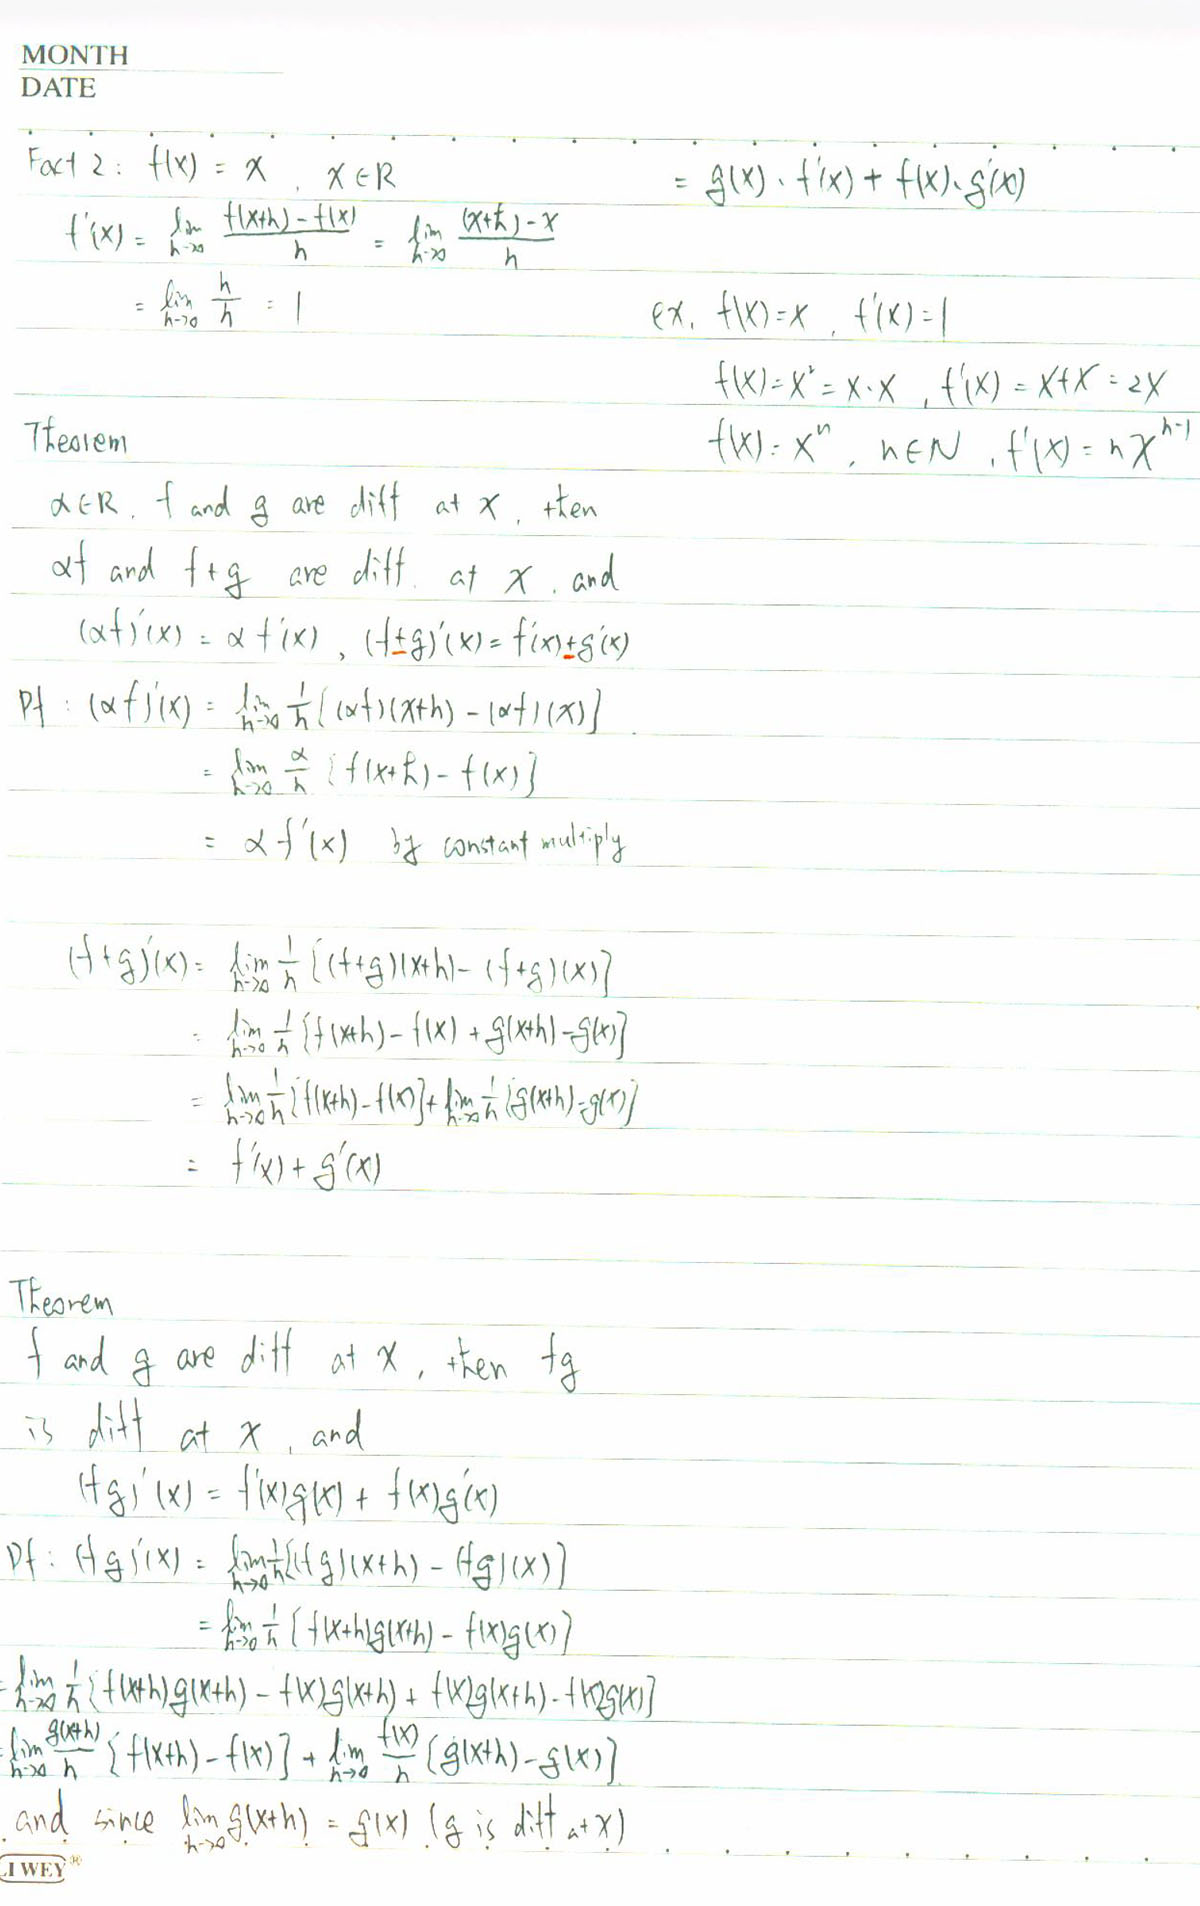 MONTH
DATE
Fact 2 : f(x) = x , x ∈ R
f'(x) = lim h→0 (f(x+h) - f(x))/h = lim h→0 ((x+h) - x)/h
= lim h→0 h/h = 1
Theorem
α ∈ R, f and g are diff at x, then
αf and f+g are diff. at x, and
(αf)'(x) = α f'(x) , (f±g)'(x) = f'(x) ± g'(x)
Pf : (αf)'(x) = lim h→0 1/h [(αf)(x+h) - (αf)(x)]
= lim h→0 α/h [f(x+h) - f(x)]
= α f'(x) by constant multiply
(f+g)'(x) = lim h→0 1/h [(f+g)(x+h) - (f+g)(x)]
= lim h→0 1/h [f(x+h) - f(x) + g(x+h) - g(x)]
= lim h→0 1/h [f(x+h) - f(x)] + lim h→0 1/h [g(x+h) - g(x)]
= f'(x) + g'(x)
Theorem
f and g are diff at x, then fg
is diff at x, and
(fg)'(x) = f'(x)g(x) + f(x)g'(x)
Pf : (fg)'(x) = lim h→0 1/h [(fg)(x+h) - (fg)(x)]
= lim h→0 1/h [f(x+h)g(x+h) - f(x)g(x)]
= lim h→0 1/h [f(x+h)g(x+h) - f(x)g(x+h) + f(x)g(x+h) - f(x)g(x)]
= lim h→0 g(x+h)/h [f(x+h) - f(x)] + lim h→0 f(x)/h [g(x+h) - g(x)]
and since lim h→0 g(x+h) = g(x) (g is diff at x)
= g(x) · f'(x) + f(x) · g'(x)
ex. f(x) = x , f'(x) = 1
f(x) = x² = x·x , f'(x) = x+x = 2x
f(x) = xⁿ , n∈N , f'(x) = nxⁿ⁻¹
I WEY®